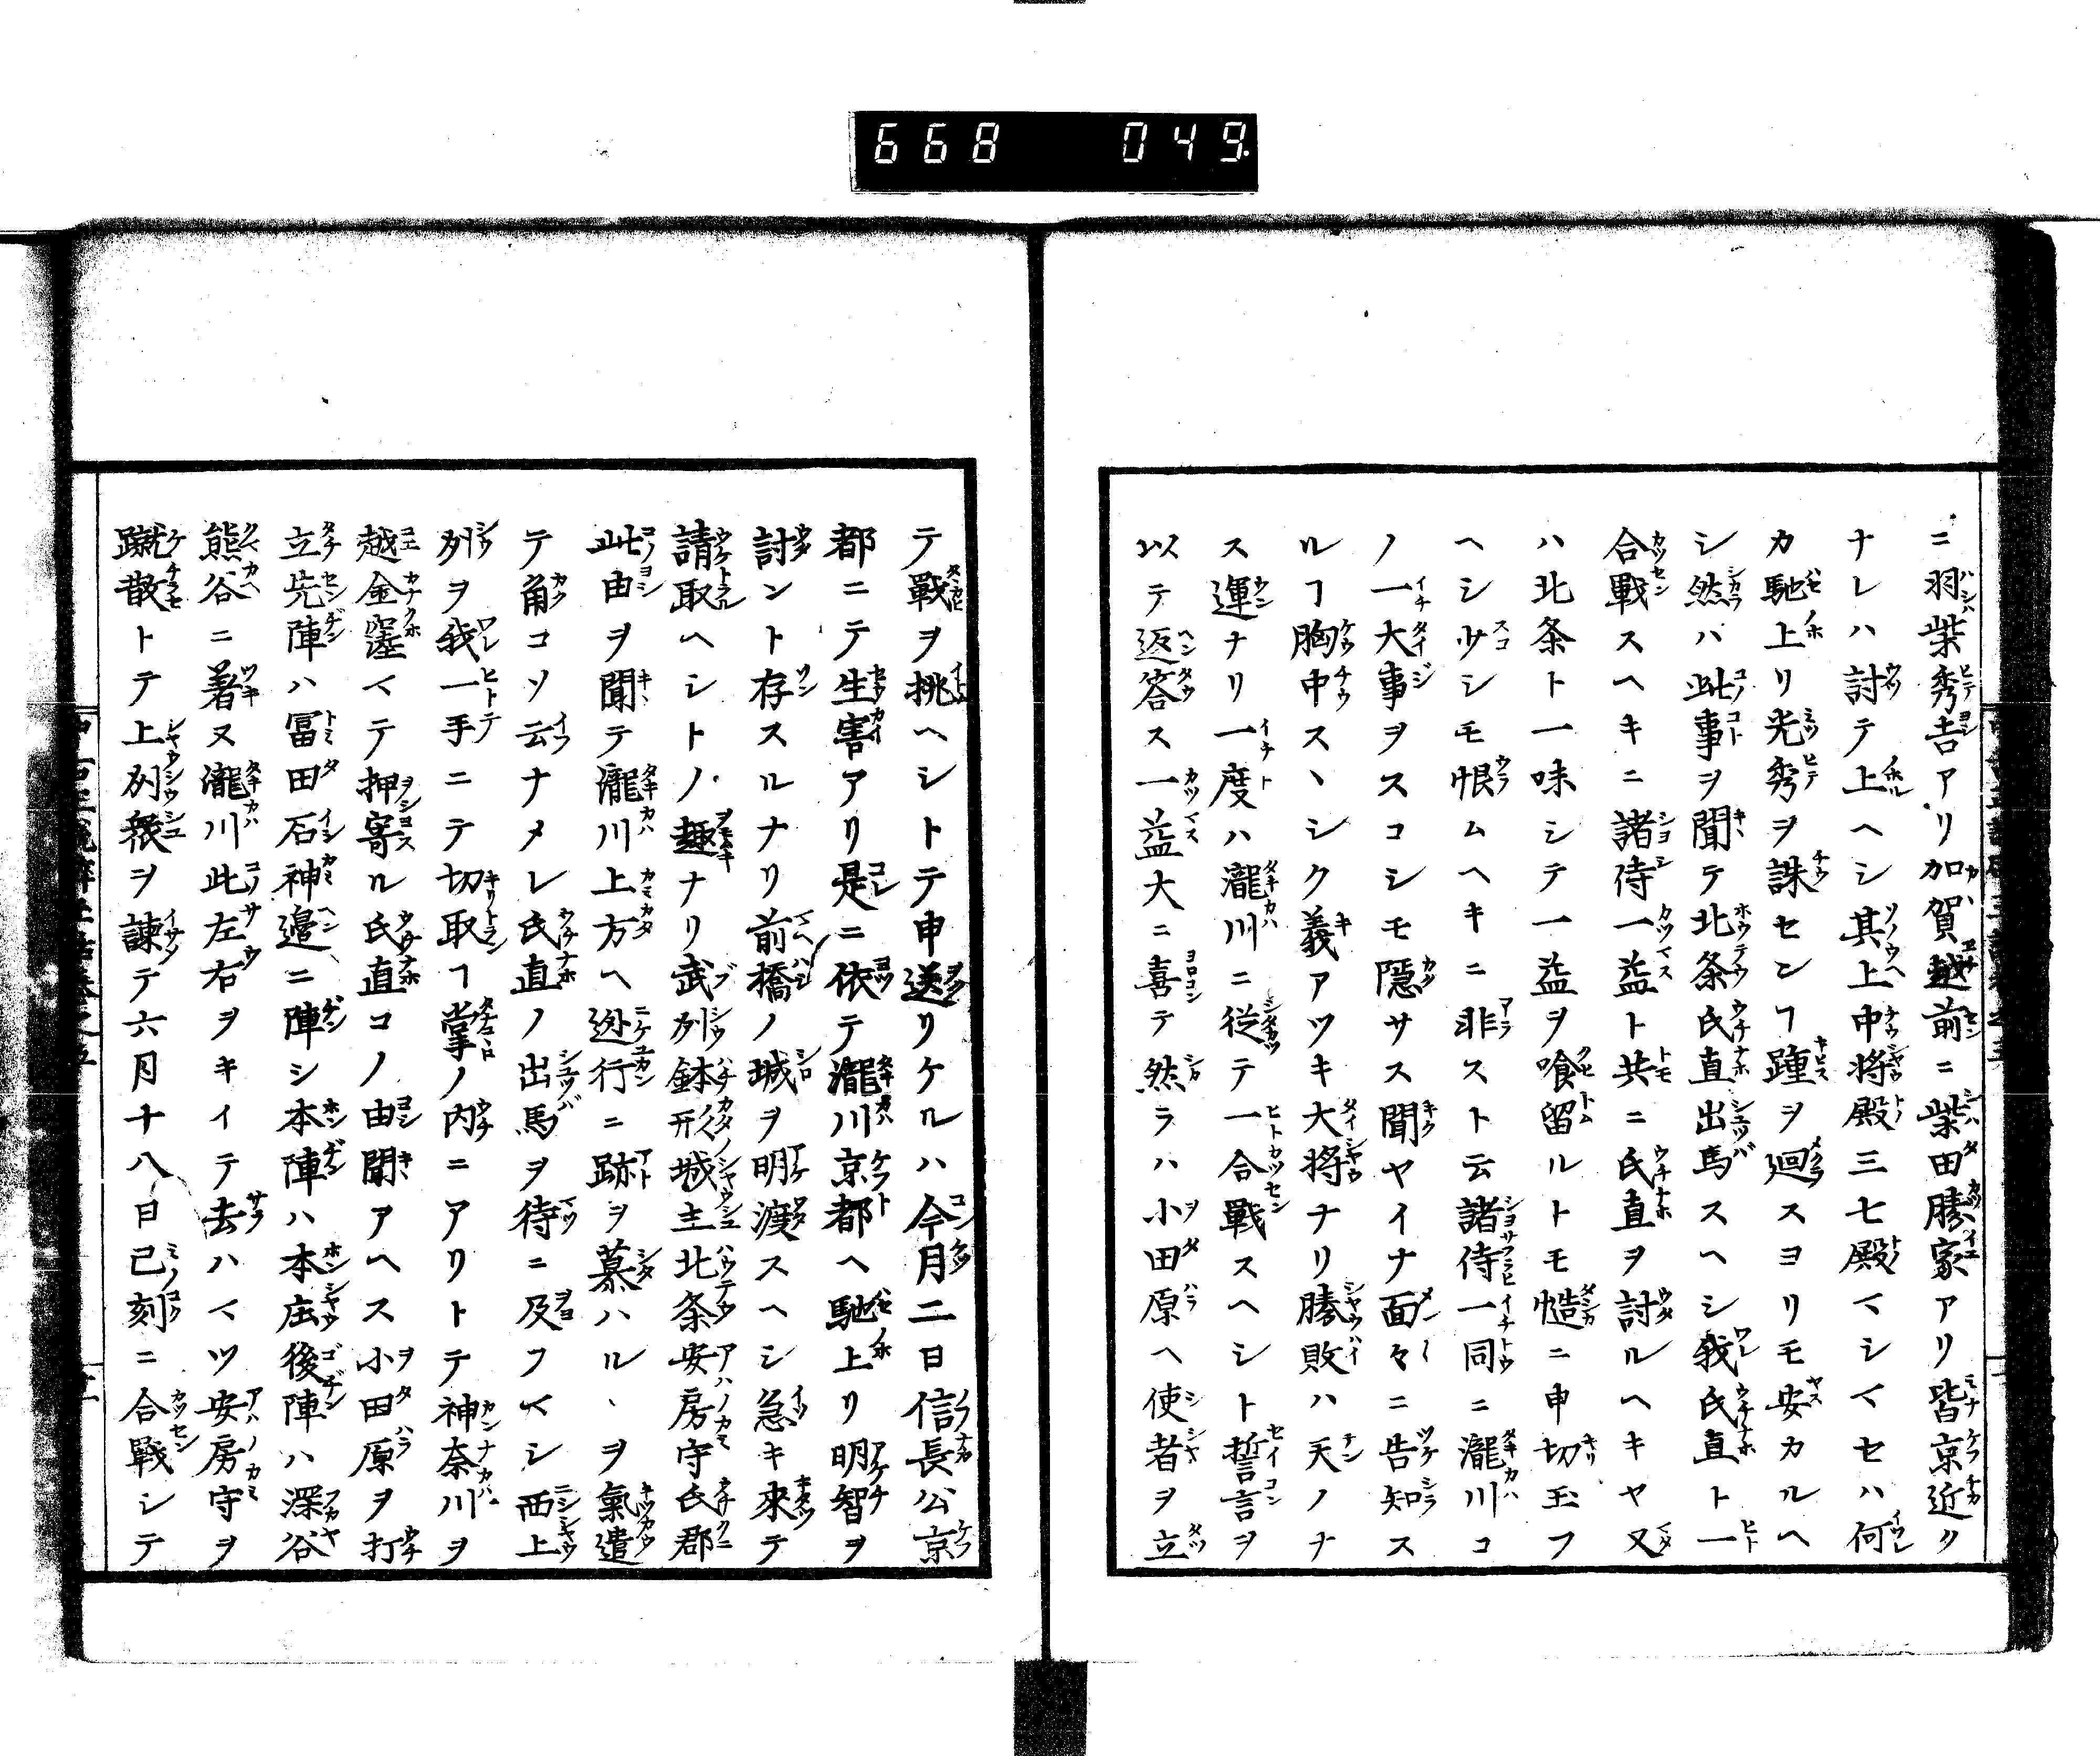 668 049.
ニ羽柴秀吉アリ加賀越前ニ柴田勝家アリ皆京近ク
ナレハ討テ上ヘシ其上中将殿三七殿マシマセハ何
カ馳上リ光秀ヲ誅センヿ踵ヲ廻スヨリモ安カルヘ
シ然ハ此事ヲ聞テ北条氏直出馬スヘシ我氏直ト一
合戰スヘキニ諸侍一益ト共ニ氏直ヲ討ルヘキヤ又
ハ北条ト一味シテ一益ヲ喰留ルトモ慥ニ申切玉フ
ヘシ少シモ恨ムヘキニ非スト云諸侍一同ニ瀧川コ
ノ一大事ヲスコシモ隱サス聞ヤイナ面々ニ告知ス
ルヿ胸中スヽシク義アツキ大将ナリ勝敗ハ天ノナ
ス運ナリ一度ハ瀧川ニ従テ一合戰スヘシト誓言ヲ
以テ返答ス一益大ニ喜テ然ラハ小田原ヘ使者ヲ立
テ戰ヲ挑ヘシトテ申送リケルハ今月二日信長公京
都ニテ生害アリ是ニ依テ瀧川京都ヘ馳上リ明智ヲ
討ント存スルナリ前橋ノ城ヲ明渡スヘシ急キ来テ
請取ヘシトノ趣ナリ武刕鉢形城主北条安房守氏郡
此由ヲ聞テ瀧川上方ヘ迯行ニ跡ヲ慕ハルヽヲ氣遣
テ角コソ云ナメレ氏直ノ出馬ヲ待ニ及フマシ西上
刕ヲ我一手ニテ切取ヿ掌ノ内ニアリトテ神奈川ヲ
越金窪マテ押寄ル氏直コノ由聞アヘス小田原ヲ打
立先陣ハ冨田石神邉ニ陣シ本陣ハ本庄後陣ハ深谷
熊谷ニ着ヌ瀧川此左右ヲキイテ去ハマツ安房守ヲ
蹴散トテ上刕衆ヲ諫テ六月十八日已刻ニ合戰シテ